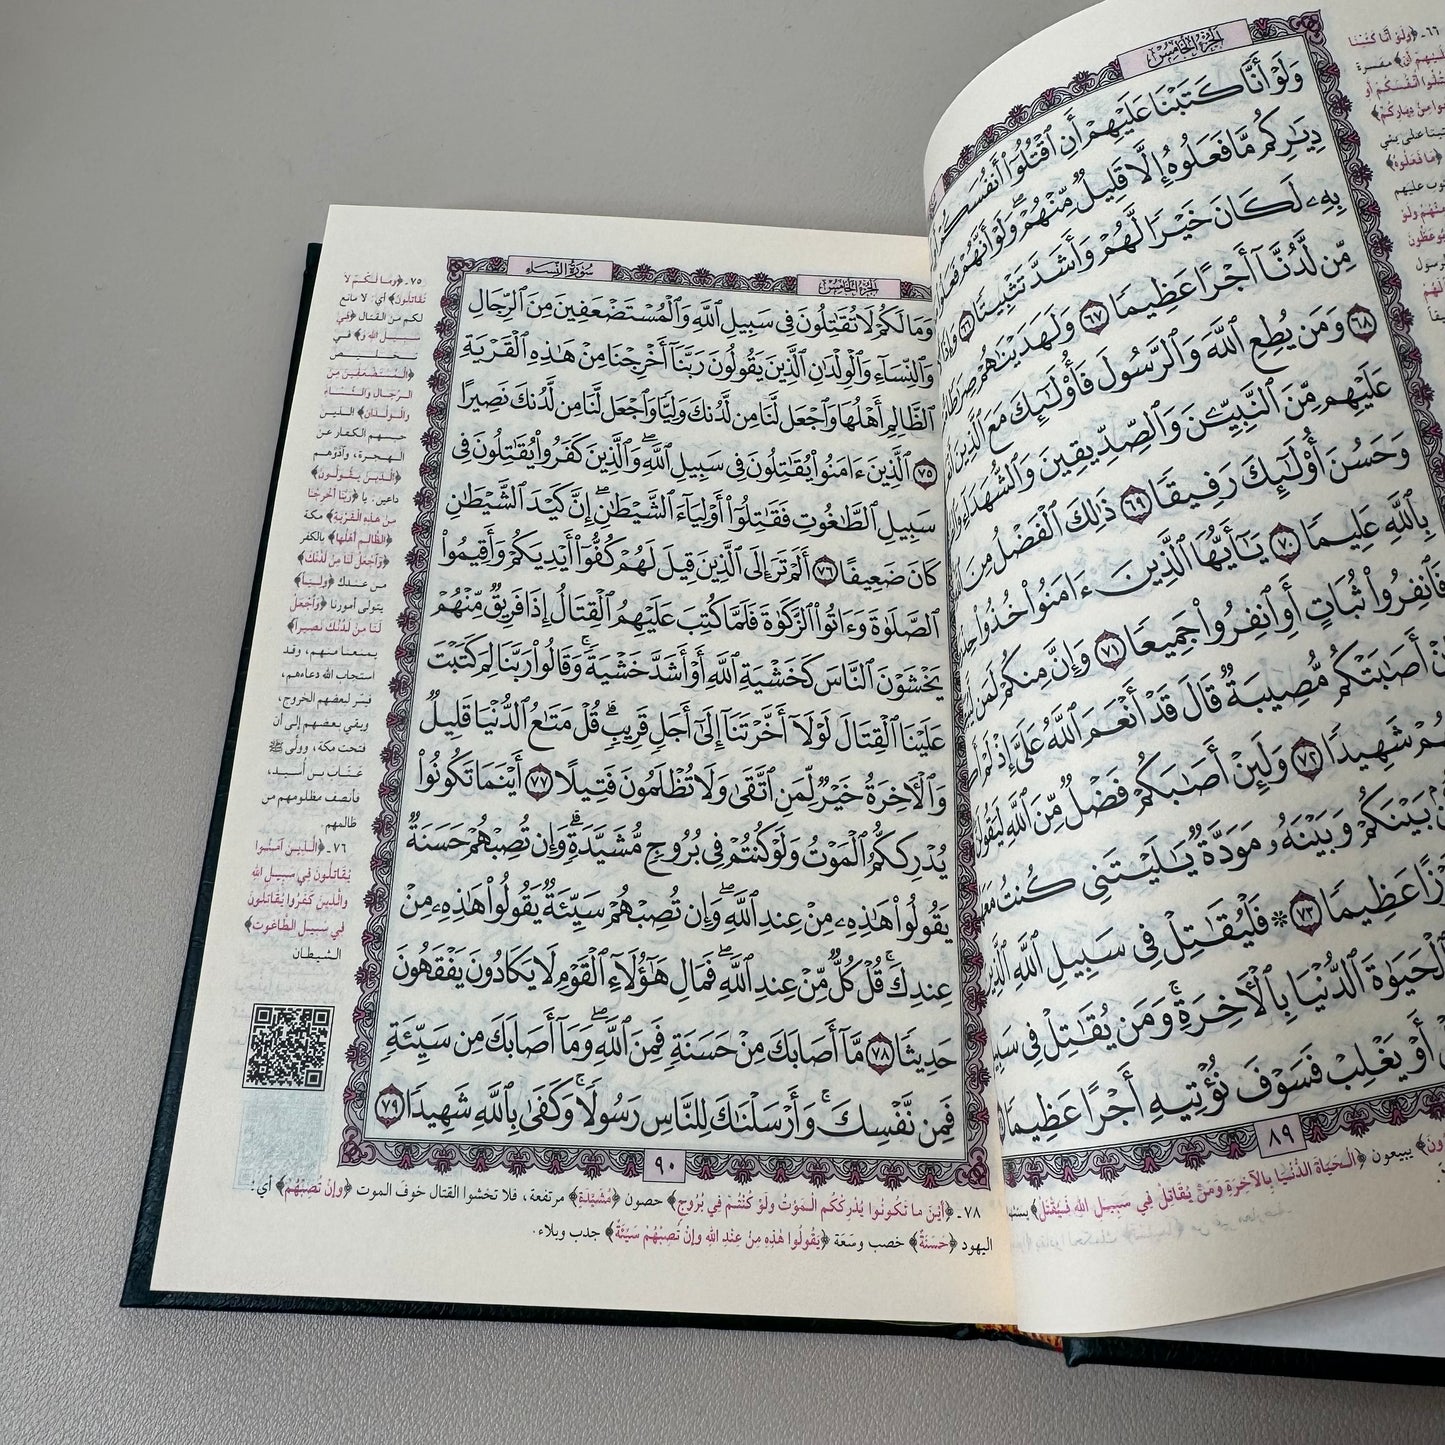 الجزء الخامس
وَلَوْ أَنَّا كَتَبْنَا عَلَيْهِمْ أَنِ ٱقْتُلُوٓا۟ أَنفُسَكُمْ
دِيَـٰرِكُم مَّا فَعَلُوهُ إِلَّا قَلِيلٌ مِّنْهُمْ ۖ وَلَوْ أَنَّهُمْ فَعَلُوا۟
بِهِۦ لَكَانَ خَيْرًا لَّهُمْ وَأَشَدَّ تَثْبِيتًا ٦٦ وَإِذًا
مِّن لَّدُنَّآ أَجْرًا عَظِيمًا ٦٧ وَلَهَدَيْنَـٰهُمْ صِرَٰطًا
٦٨ وَمَن يُطِعِ ٱللَّهَ وَٱلرَّسُولَ فَأُو۟لَـٰٓئِكَ مَعَ ٱلَّذِينَ
عَلَيْهِم مِّنَ ٱلنَّبِيِّـۧنَ وَٱلصِّدِّيقِينَ وَٱلشُّهَدَآءِ
وَحَسُنَ أُو۟لَـٰٓئِكَ رَفِيقًا ٦٩ ذَٰلِكَ ٱلْفَضْلُ مِنَ
بِٱللَّهِ عَلِيمًا ٧٠ يَـٰٓأَيُّهَا ٱلَّذِينَ ءَامَنُوا۟ خُذُوا۟
فَٱنفِرُوا۟ ثُبَاتٍ أَوِ ٱنفِرُوا۟ جَمِيعًا ٧١ وَإِنَّ مِنكُمْ لَمَن
أَصَـٰبَتْكُم مُّصِيبَةٌ قَالَ قَدْ أَنْعَمَ ٱللَّهُ عَلَىَّ إِذْ لَمْ
شَهِيدًا ٧٢ وَلَئِنْ أَصَـٰبَكُمْ فَضْلٌ مِّنَ ٱللَّهِ لَيَقُولَنَّ
بَيْنَكُمْ وَبَيْنَهُۥ مَوَدَّةٌ يَـٰلَيْتَنِى كُنتُ مَعَهُمْ
عَظِيمًا ٧٣ ۞ فَلْيُقَـٰتِلْ فِى سَبِيلِ ٱللَّهِ ٱلَّذِينَ
ٱلْحَيَوٰةَ ٱلدُّنْيَا بِٱلْـَٔاخِرَةِ ۚ وَمَن يُقَـٰتِلْ فِى
أَوْ يَغْلِبْ فَسَوْفَ نُؤْتِيهِ أَجْرًا عَظِيمًا
٨٩
يبيعون ﴿الْحَيَاةَ الدُّنْيَا بِالْآخِرَةِ وَمَنْ يُقَاتِلْ فِي سَبِيلِ اللهِ فَيُقْتَلْ﴾
٦٦ـ ﴿وَلَوْ أَنَّا كَتَبْنَا
عَلَيْهِمْ أَنْ﴾ مفسرة
﴿مَا فَعَلُوهُ﴾
سورة النساء
الجزء الخامس
وَمَا لَكُمْ لَا تُقَـٰتِلُونَ فِى سَبِيلِ ٱللَّهِ وَٱلْمُسْتَضْعَفِينَ مِنَ ٱلرِّجَالِ
وَٱلنِّسَآءِ وَٱلْوِلْدَٰنِ ٱلَّذِينَ يَقُولُونَ رَبَّنَآ أَخْرِجْنَا مِنْ هَـٰذِهِ ٱلْقَرْيَةِ
ٱلظَّالِمِ أَهْلُهَا وَٱجْعَل لَّنَا مِن لَّدُنكَ وَلِيًّا وَٱجْعَل لَّنَا مِن لَّدُنكَ نَصِيرًا
٧٥ ٱلَّذِينَ ءَامَنُوا۟ يُقَـٰتِلُونَ فِى سَبِيلِ ٱللَّهِ ۖ وَٱلَّذِينَ كَفَرُوا۟ يُقَـٰتِلُونَ فِى
سَبِيلِ ٱلطَّـٰغُوتِ فَقَـٰتِلُوٓا۟ أَوْلِيَآءَ ٱلشَّيْطَـٰنِ ۖ إِنَّ كَيْدَ ٱلشَّيْطَـٰنِ
كَانَ ضَعِيفًا ٧٦ أَلَمْ تَرَ إِلَى ٱلَّذِينَ قِيلَ لَهُمْ كُفُّوٓا۟ أَيْدِيَكُمْ وَأَقِيمُوا۟
ٱلصَّلَوٰةَ وَءَاتُوا۟ ٱلزَّكَوٰةَ فَلَمَّا كُتِبَ عَلَيْهِمُ ٱلْقِتَالُ إِذَا فَرِيقٌ مِّنْهُمْ
يَخْشَوْنَ ٱلنَّاسَ كَخَشْيَةِ ٱللَّهِ أَوْ أَشَدَّ خَشْيَةً ۚ وَقَالُوا۟ رَبَّنَا لِمَ كَتَبْتَ
عَلَيْنَا ٱلْقِتَالَ لَوْلَآ أَخَّرْتَنَآ إِلَىٰٓ أَجَلٍ قَرِيبٍ ۗ قُلْ مَتَـٰعُ ٱلدُّنْيَا قَلِيلٌ
وَٱلْـَٔاخِرَةُ خَيْرٌ لِّمَنِ ٱتَّقَىٰ وَلَا تُظْلَمُونَ فَتِيلًا ٧٧ أَيْنَمَا تَكُونُوا۟
يُدْرِككُّمُ ٱلْمَوْتُ وَلَوْ كُنتُمْ فِى بُرُوجٍ مُّشَيَّدَةٍ ۗ وَإِن تُصِبْهُمْ حَسَنَةٌ
يَقُولُوا۟ هَـٰذِهِۦ مِنْ عِندِ ٱللَّهِ ۖ وَإِن تُصِبْهُمْ سَيِّئَةٌ يَقُولُوا۟ هَـٰذِهِۦ مِنْ
عِندِكَ ۚ قُلْ كُلٌّ مِّنْ عِندِ ٱللَّهِ ۖ فَمَالِ هَـٰٓؤُلَآءِ ٱلْقَوْمِ لَا يَكَادُونَ يَفْقَهُونَ
حَدِيثًا ٧٨ مَّآ أَصَابَكَ مِنْ حَسَنَةٍ فَمِنَ ٱللَّهِ ۖ وَمَآ أَصَابَكَ مِن سَيِّئَةٍ
فَمِن نَّفْسِكَ ۚ وَأَرْسَلْنَـٰكَ لِلنَّاسِ رَسُولًا ۚ وَكَفَىٰ بِٱللَّهِ شَهِيدًا ٧٩
٩٠
٧٥ـ ﴿وَمَا لَكُمْ لَا
تُقَاتِلُونَ﴾ أي: لا مانع
لكم من القتال ﴿فِي
سَبِيلِ اللهِ وَ﴾ في
تخليص
﴿الْمُسْتَضْعَفِينَ مِنَ
الرِّجَالِ وَالنِّسَاءِ
وَالْوِلْدَانِ﴾ الذين
حبسهم الكفار عن
الهجرة، وآذوهم
﴿الَّذِينَ يَقُولُونَ﴾
داعين: يا ﴿رَبَّنَا أَخْرِجْنَا
مِنْ هَذِهِ الْقَرْيَةِ﴾ مكة
﴿الظَّالِمِ أَهْلُهَا﴾ بالكفر
﴿وَاجْعَلْ لَنَا مِنْ لَدُنْكَ﴾
من عندك ﴿وَلِيًّا﴾
يتولى أمورنا ﴿وَاجْعَلْ
لَنَا مِنْ لَدُنْكَ نَصِيرًا﴾
يمنعنا منهم، وقد
استجاب الله دعاءهم،
فيسّر لبعضهم الخروج،
وبقي بعضهم إلى أن
فتحت مكة، وولّى ﷺ
عتاب بن أسيد،
فأنصف مظلومهم من
ظالمهم.
٧٦ـ ﴿الَّذِينَ آمَنُوا
يُقَاتِلُونَ فِي سَبِيلِ اللهِ
وَالَّذِينَ كَفَرُوا يُقَاتِلُونَ
فِي سَبِيلِ الطَّاغُوتِ﴾
الشيطان
٧٨ـ ﴿أَيْنَ مَا تَكُونُوا يُدْرِكْكُمُ الْمَوْتُ وَلَوْ كُنْتُمْ فِي بُرُوجٍ﴾ حصون ﴿مُشَيَّدَةٍ﴾ مرتفعة، فلا تخشوا القتال خوف الموت ﴿وَإِنْ تُصِبْهُمْ﴾ أي:
اليهود ﴿حَسَنَةٌ﴾ خصب وسَعَة ﴿يَقُولُوا هَذِهِ مِنْ عِنْدِ اللهِ وَإِنْ تُصِبْهُمْ سَيِّئَةٌ﴾ جدب وبلاء.